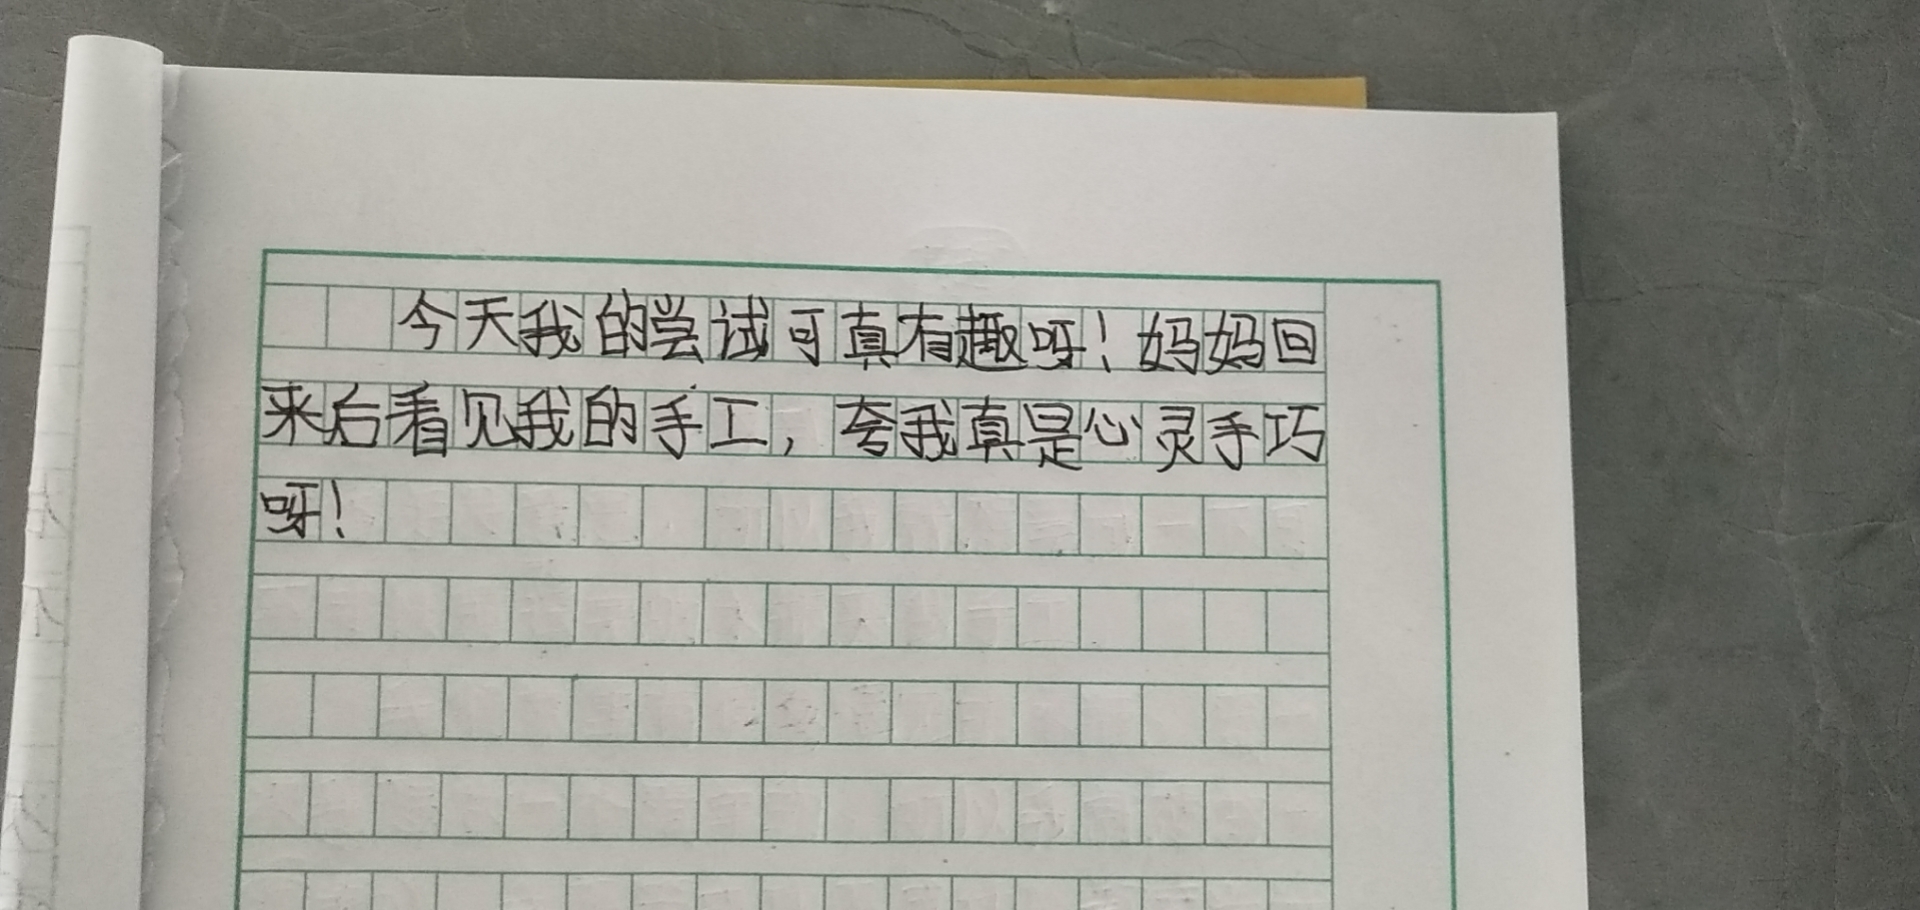 今天我的尝试可真有趣呀！妈妈回
来后看见我的手工，夸我真是心灵手巧
呀！